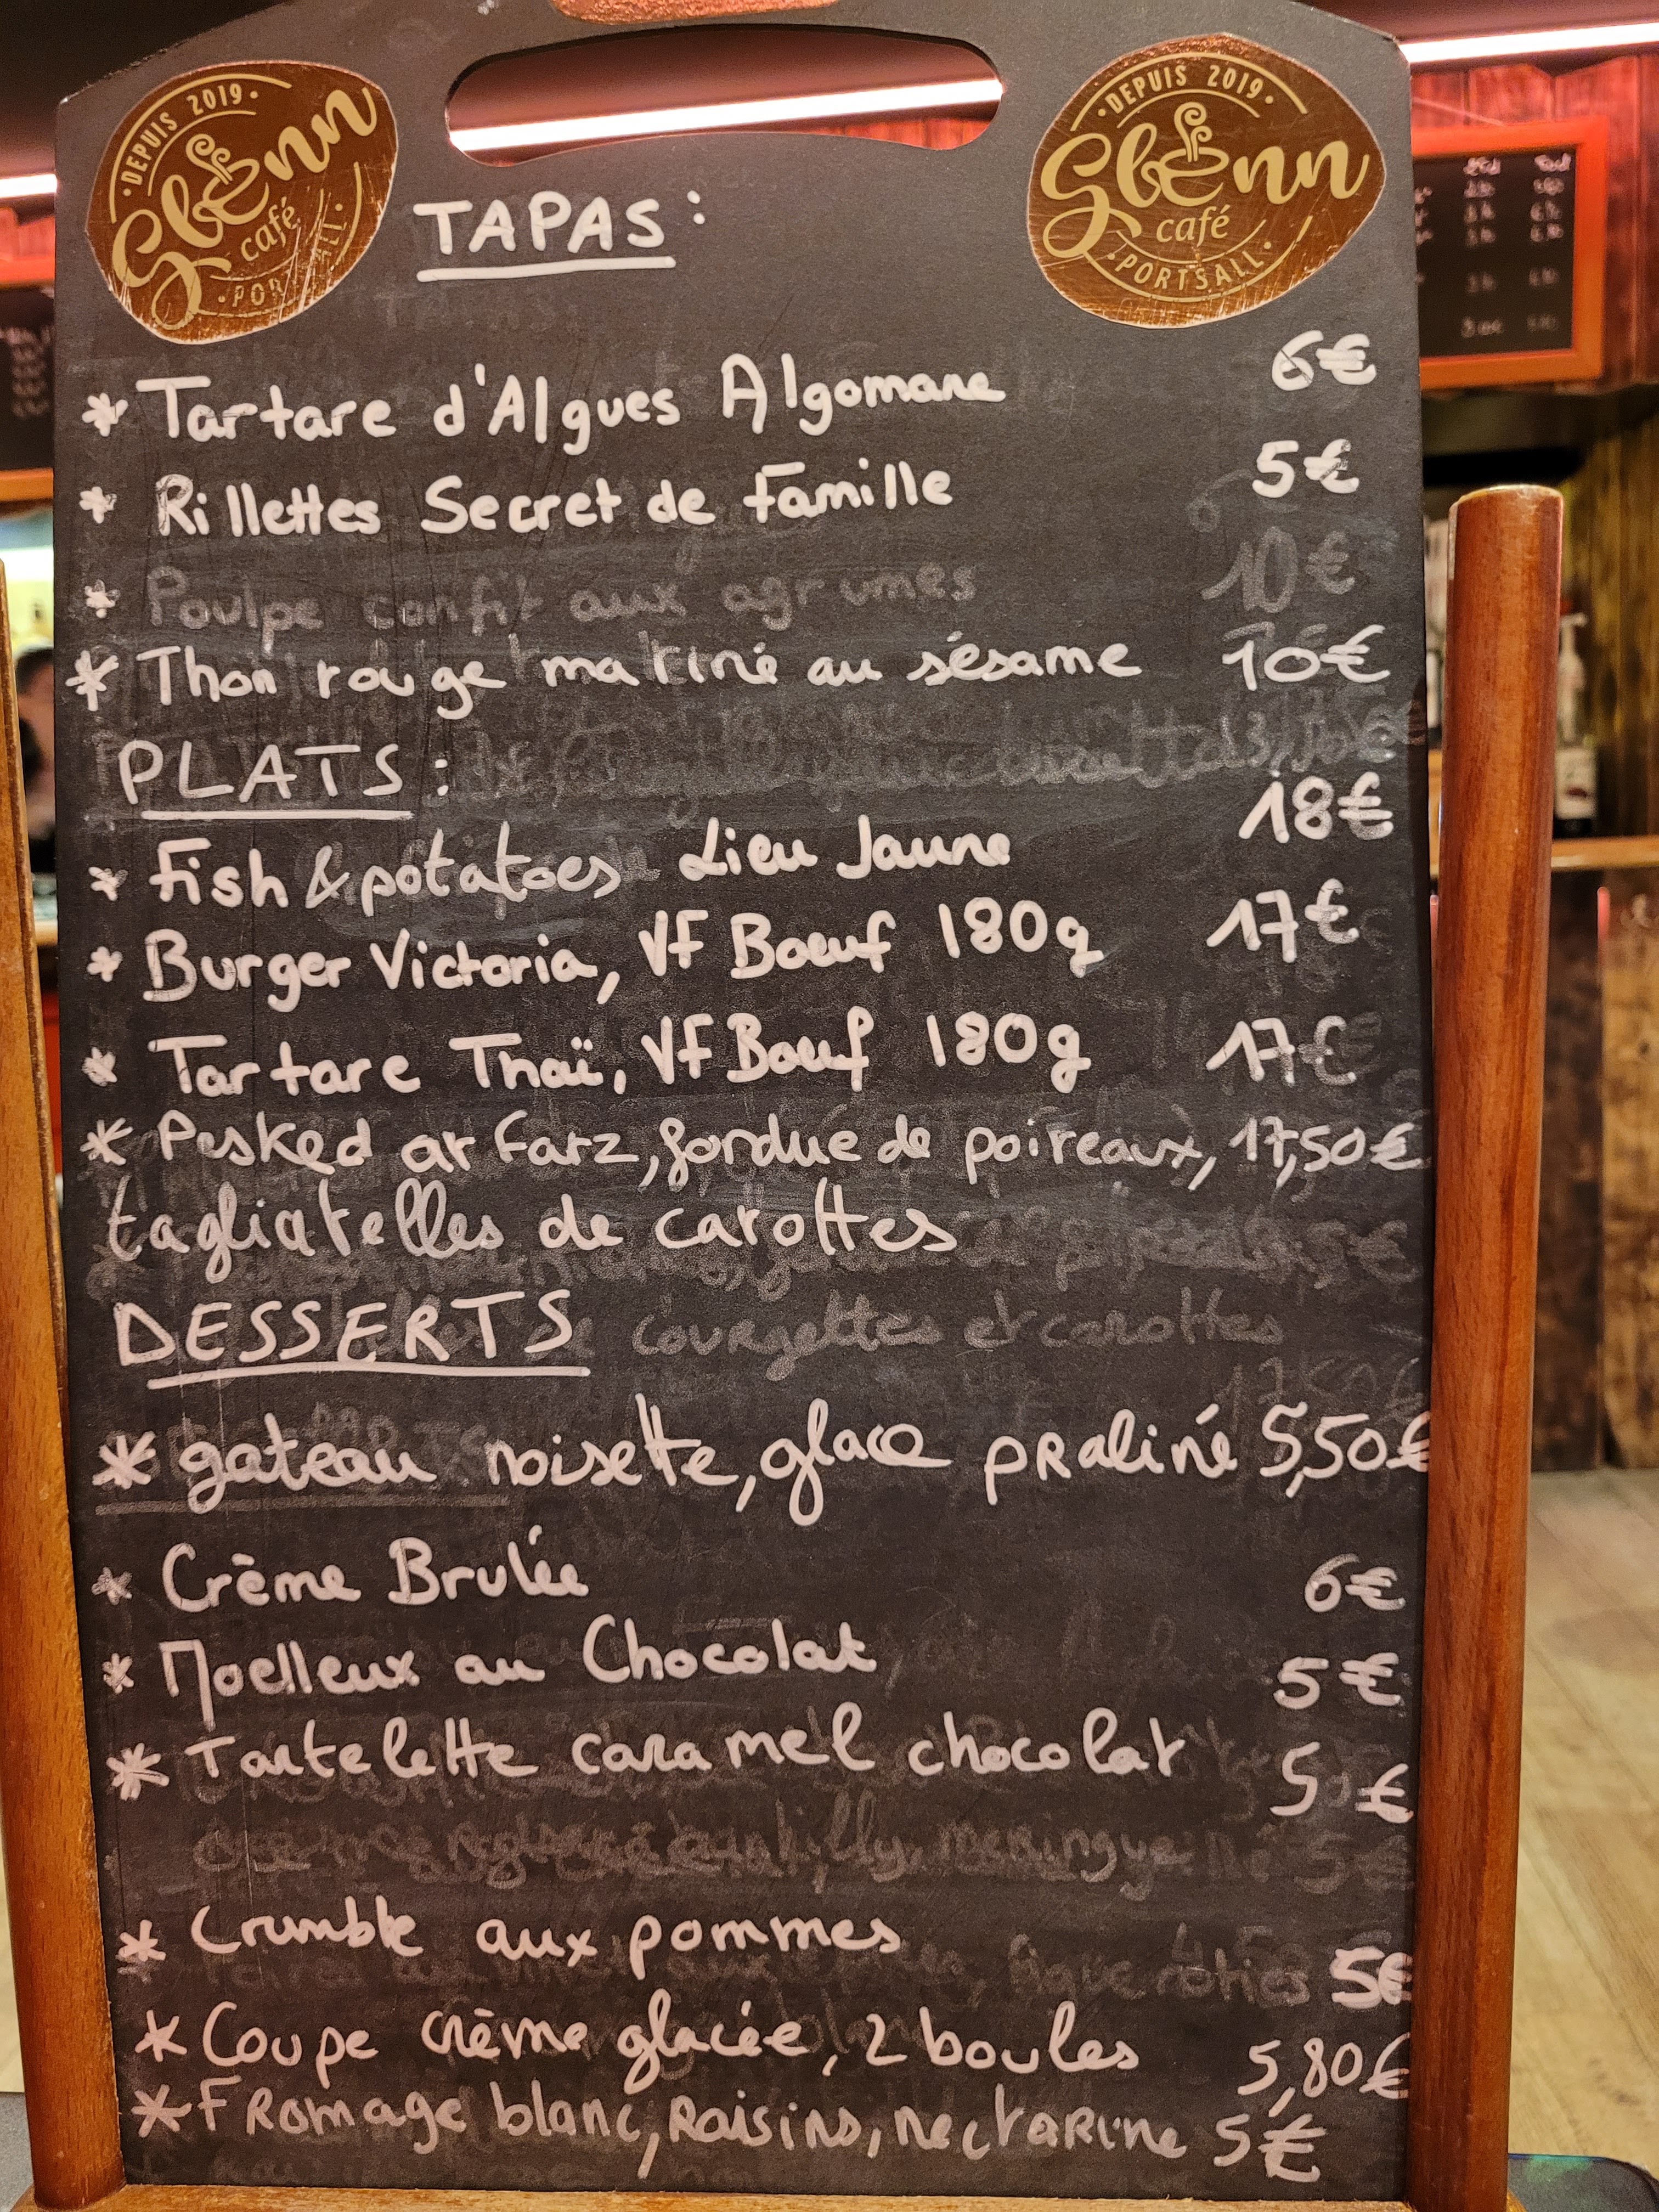 DEPUIS 2019
Glenn
café
PORTSALL
DEPUIS 2019
Glenn
café
PORTSALL
TAPAS :
* Tartare d'Algues Algomane 6€
* Rillettes Secret de Famille 5€
* Poulpe confit aux agrumes 10€
* Thon rouge mariné au sésame 10€
PLATS :
* Fish & potatoes Lieu Jaune 18€
* Burger Victoria, VF Bœuf 180g 17€
* Tartare Thaï, VF Bœuf 180g 17€
* Pesked ar Farz, fondue de poireaux, 17,50€
tagliatelles de carottes
DESSERTS
courgettes et carottes
* gateau noisette, glace praliné 5,50€
* Crème Brulée 6€
* Moelleux au Chocolat 5€
* Tartelette caramel chocolat 5€
meringue 5€
* Crumble aux pommes 5€
* Coupe crème glacée, 2 boules 5,80€
* Fromage blanc, raisins, nectarine 5€